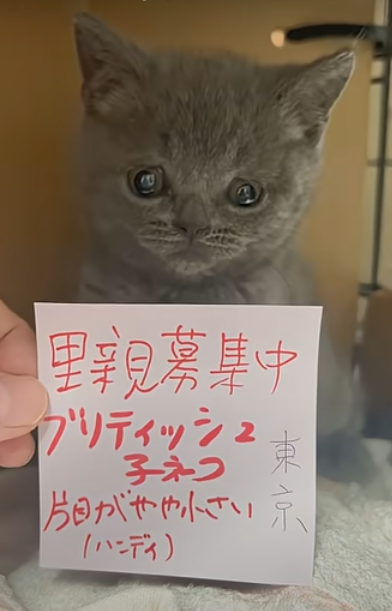 里親募集中
ブリティッシュ
子ネコ
片目がやや小さい
(ハンディ)
東京